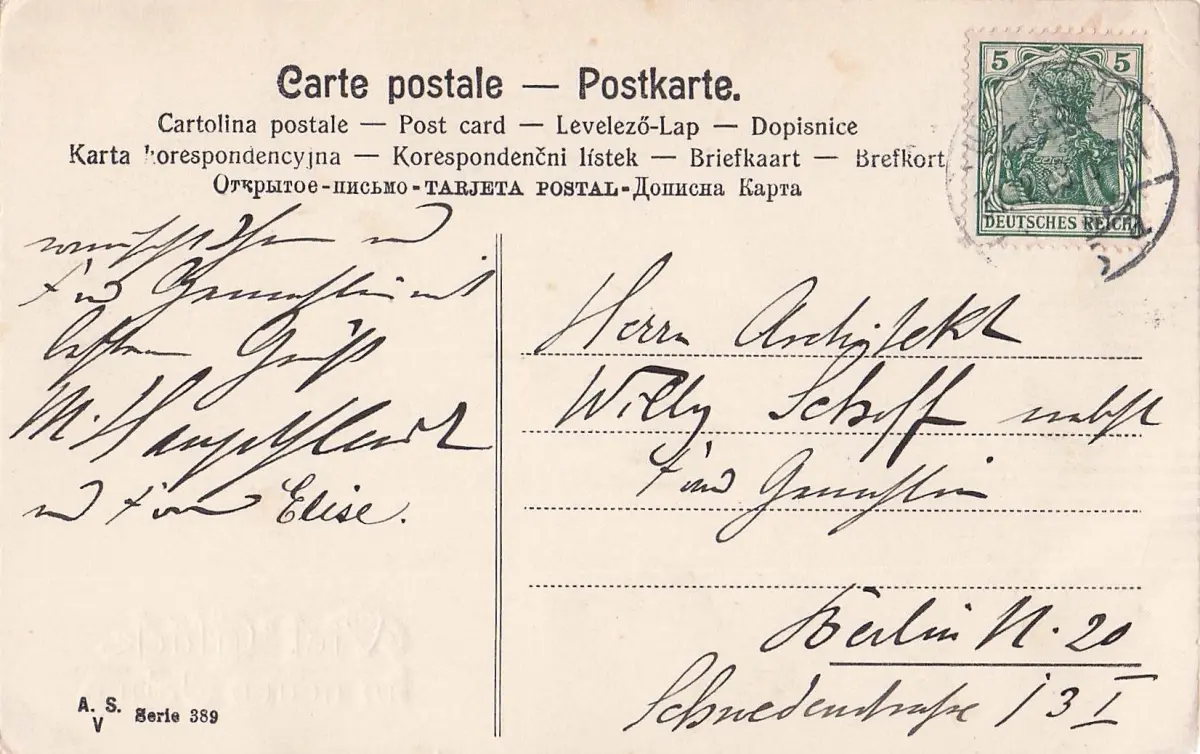 Carte postale — Postkarte.
Cartolina postale — Post card — Levelező-Lap — Dopisnice
Karta korespondencyjna — Korespondenčni lístek — Briefkaart — Brefkort
Открытое-письмо-TARJETA POSTAL-Дописна Карта
5 5
DEUTSCHES REICH
wünscht Ihnen und
Gemahlin mit
besten Gruß
M.
und Frau Elise.
Herrn Architekt
Willy Schoff nebst
Frau Gemahlin
Berlin N. 20
Schwedenstraße 13 I
Viel Glück
im neuen Jahre
A. S.
V Serie 389